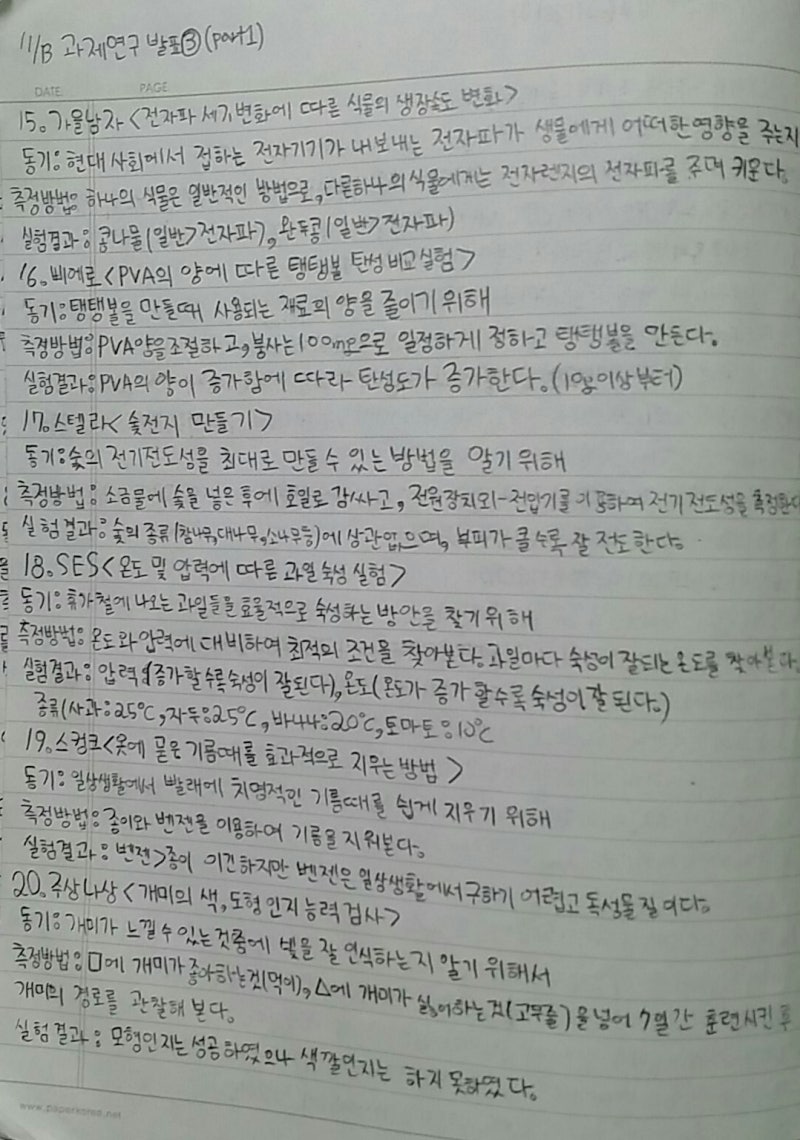 11/13 과제연구 발표③(part1)
DATE. PAGE
15. 가을남자<전자파 세기변화에 따른 식물의 생장속도 변화>
동기: 현대사회에서 접하는 전자기기가 내보내는 전자파가 생물에게 어떠한 영향을 주는지
측정방법: 하나의 식물은 일반적인 방법으로, 다른하나의 식물에게는 전자렌지의 전자파를 주며 키운다.
실험결과: 콩나물(일반>전자파), 완두콩(일반>전자파)
16. 삐에로<PVA의 양에 따른 탱탱볼 탄성비교실험>
동기: 탱탱볼을 만들때 사용되는 재료의 양을 줄이기 위해
측정방법: PVA양을조절하고, 붕사는100ml으로 일정하게 정하고 탱탱볼을 만든다.
실험결과: PVA의 양이 증가함에 따라 탄성도가 증가한다.(10g이상부터)
17. 스텔라<숯전지 만들기>
동기: 숯의 전기전도성을 최대로 만들 수 있는 방법을 알기 위해
측정방법: 소금물에 숯을 넣은 후에 호일로 감싸고, 전원장치와 전압기를 이용하여 전기전도성을 측정한다
실험결과: 숯의 종류(참나무,대나무,소나무등)에 상관없으며, 부피가 클수록 잘 전도한다.
18. SES<온도 및 압력에 따른 과일 숙성 실험>
동기: 휴가철에 나오는 과일들을 효율적으로 숙성하는 방안을 찾기위해
측정방법: 온도와압력에 대비하여 최적의 조건을 찾아본다. 과일마다 숙성이 잘되는 온도를 찾아본다.
실험결과: 압력(증가할수록숙성이 잘된다), 온도(온도가 증가 할수록 숙성이 잘 된다.)
종류(사과:25℃, 자두:25℃, 바나나:20℃, 토마토:10℃
19. 스컹크<옷에 묻은 기름때를 효과적으로 지우는 방법>
동기: 일상생활에서 빨래에 치명적인 기름때를 쉽게 지우기 위해
측정방법: 종이와 벤젠을 이용하여 기름을 지워본다.
실험결과: 벤젠>종이 이긴하지만 벤젠은 일상생활에서 구하기 어렵고 독성물질이다.
20. 주상나상<개미의 색, 도형 인지 능력 검사>
동기: 개미가 느낄 수 있는것중에 빛을 잘 인식하는지 알기 위해서
측정방법: □에 개미가 좋아하는것(먹이), △에 개미가 싫어하는것(고무줄)을넣어 7일간 훈련시킨 후
개미의 경로를 관찰해 본다.
실험결과: 모형인지는 성공하였으나 색깔인지는 하지 못하였다.
www.paperkorea.net